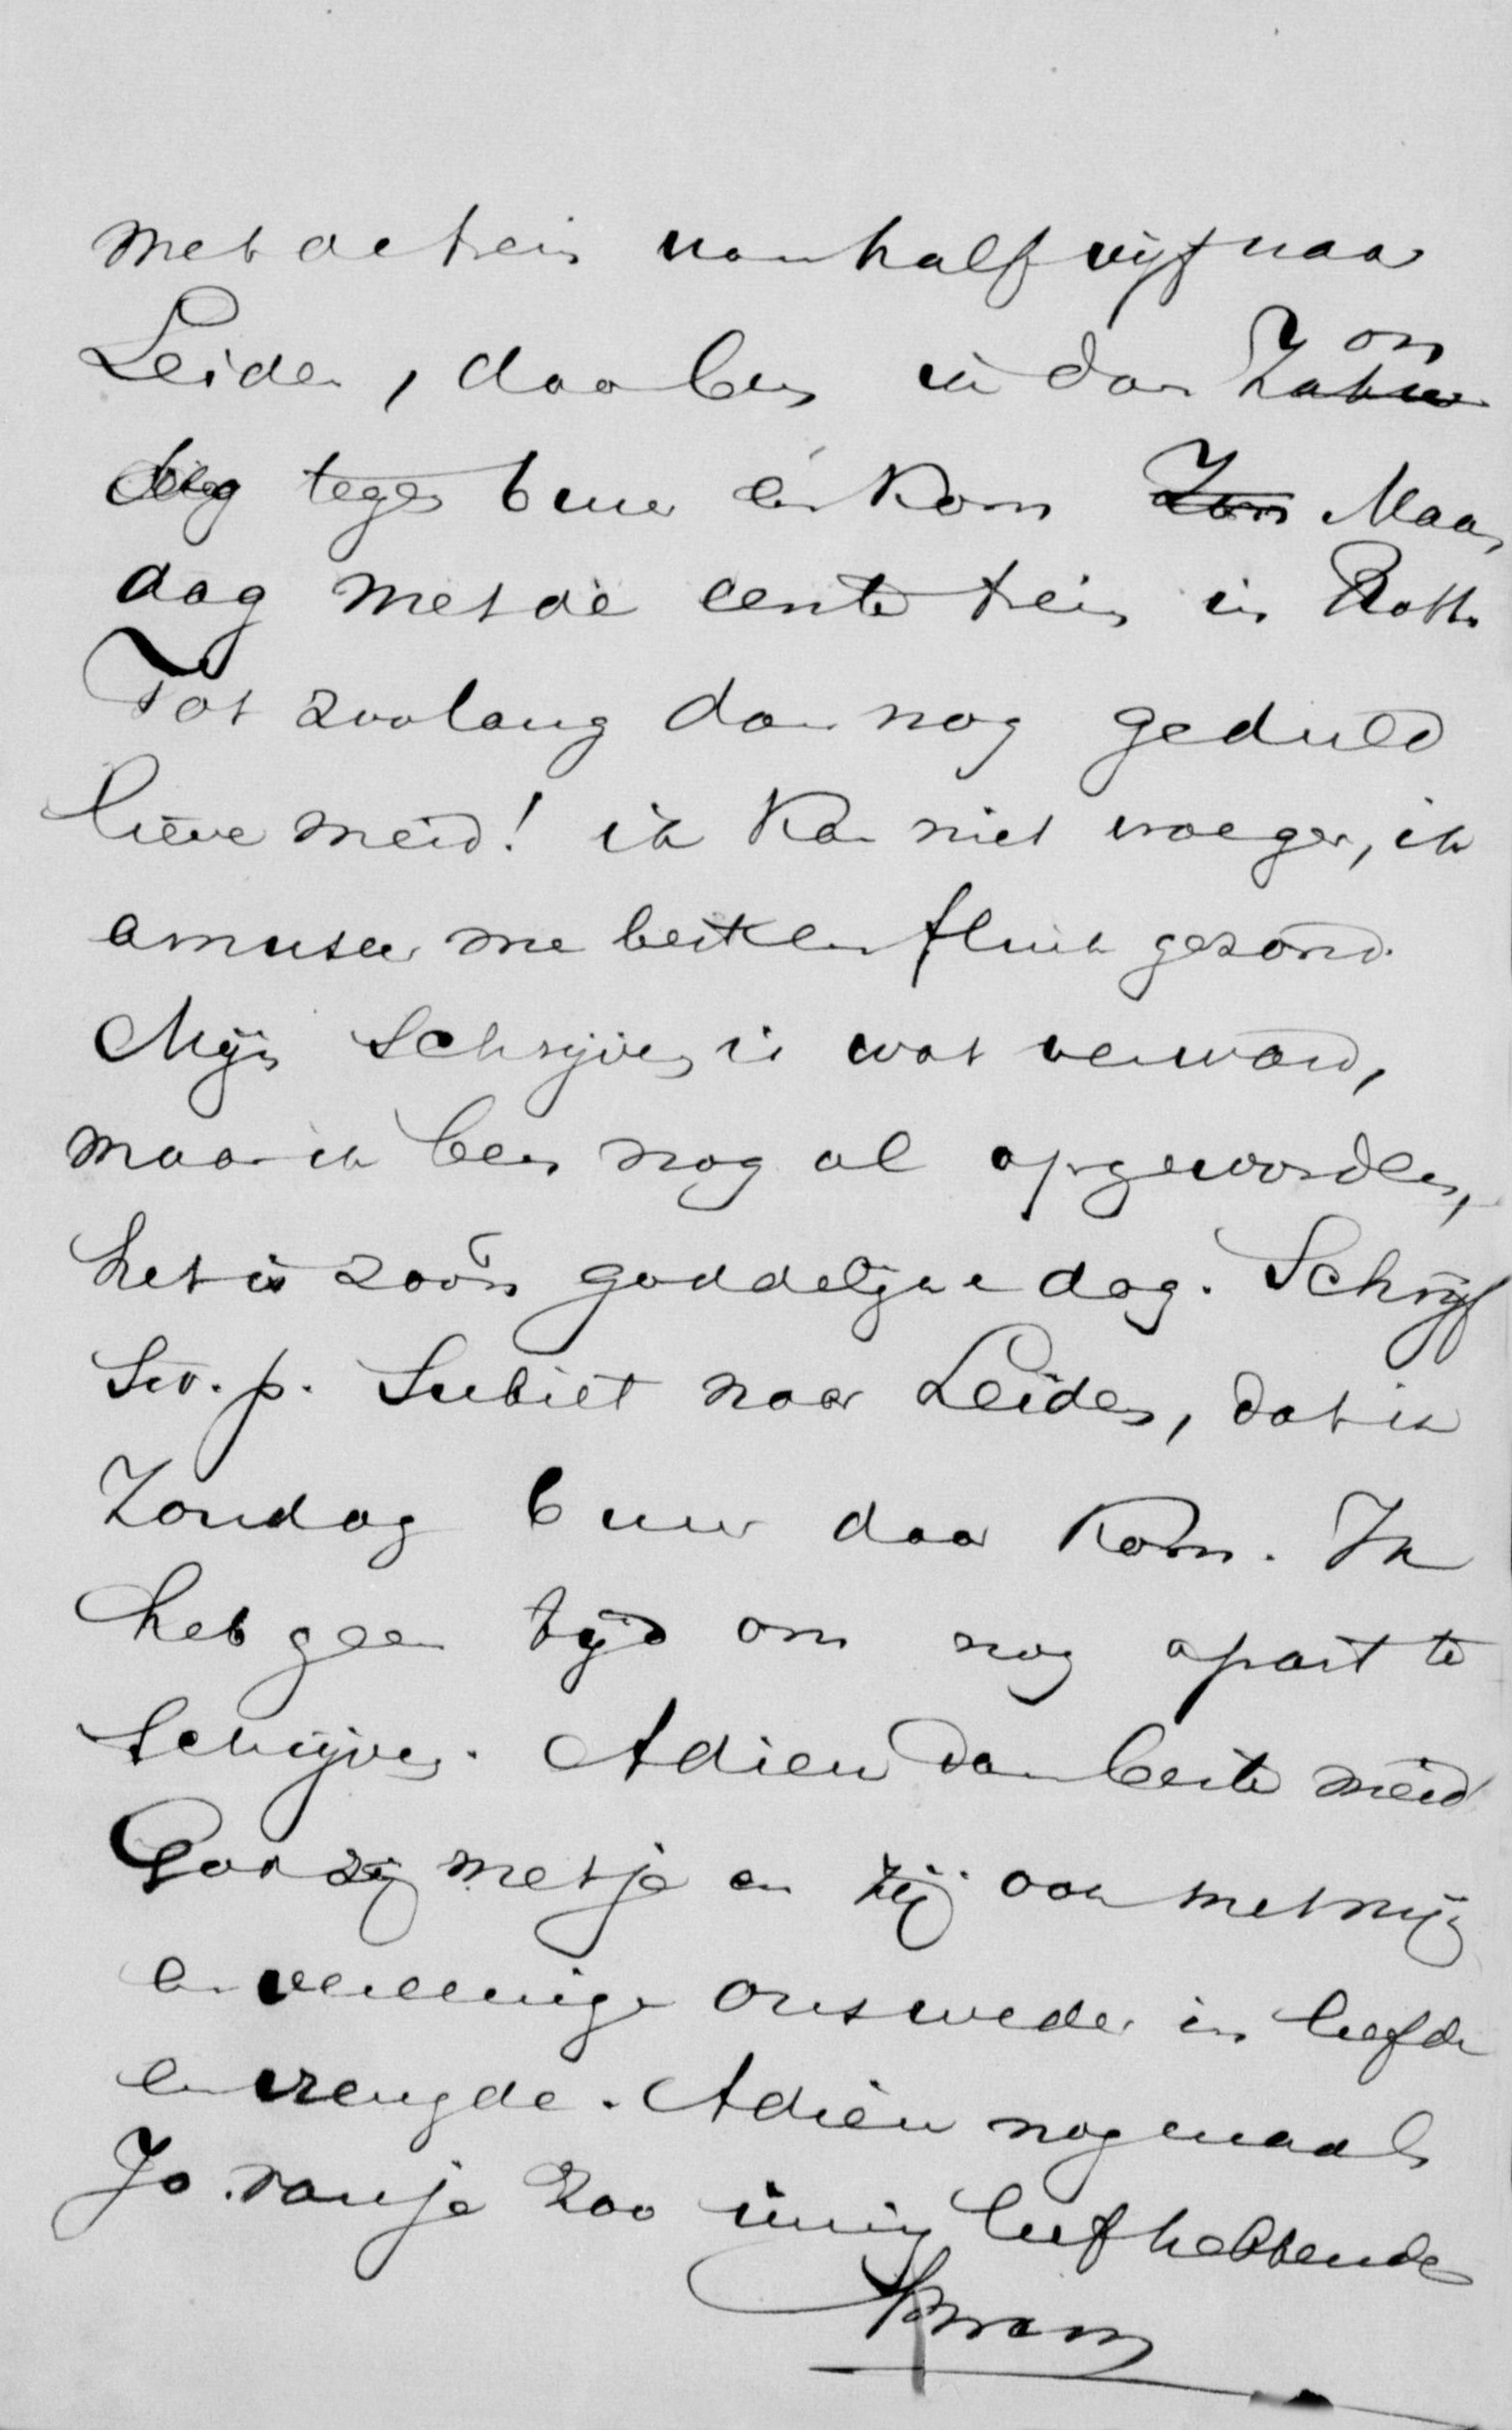 met de trein van half vijf naar
Leiden, daar ben ik dan Zon
dag tegen 6 uur en kom Zon Maan
dag met de eerste trein in Rott.
Tot zoolang dan nog geduld
lieve meid! ik kan niet vroeger, ik
amuseer me best en flink gezond.
Mijn schrijven is wat verward,
maar ik ben nog al opgewonden,
het is zoo'n goddelijke dag. Schrijf
s.v.p. subiet naar Leiden, dat ik
Zondag 6 uur daar kom. Ik
heb geen tijd om nog apart te
schrijven. Adieu dan beste meid
God zij met je en zij ook met mij
en vereenige ons weder in liefde
en vreugde. Adieu nogmaals
Jo van je zoo innig liefhebbende
Abram